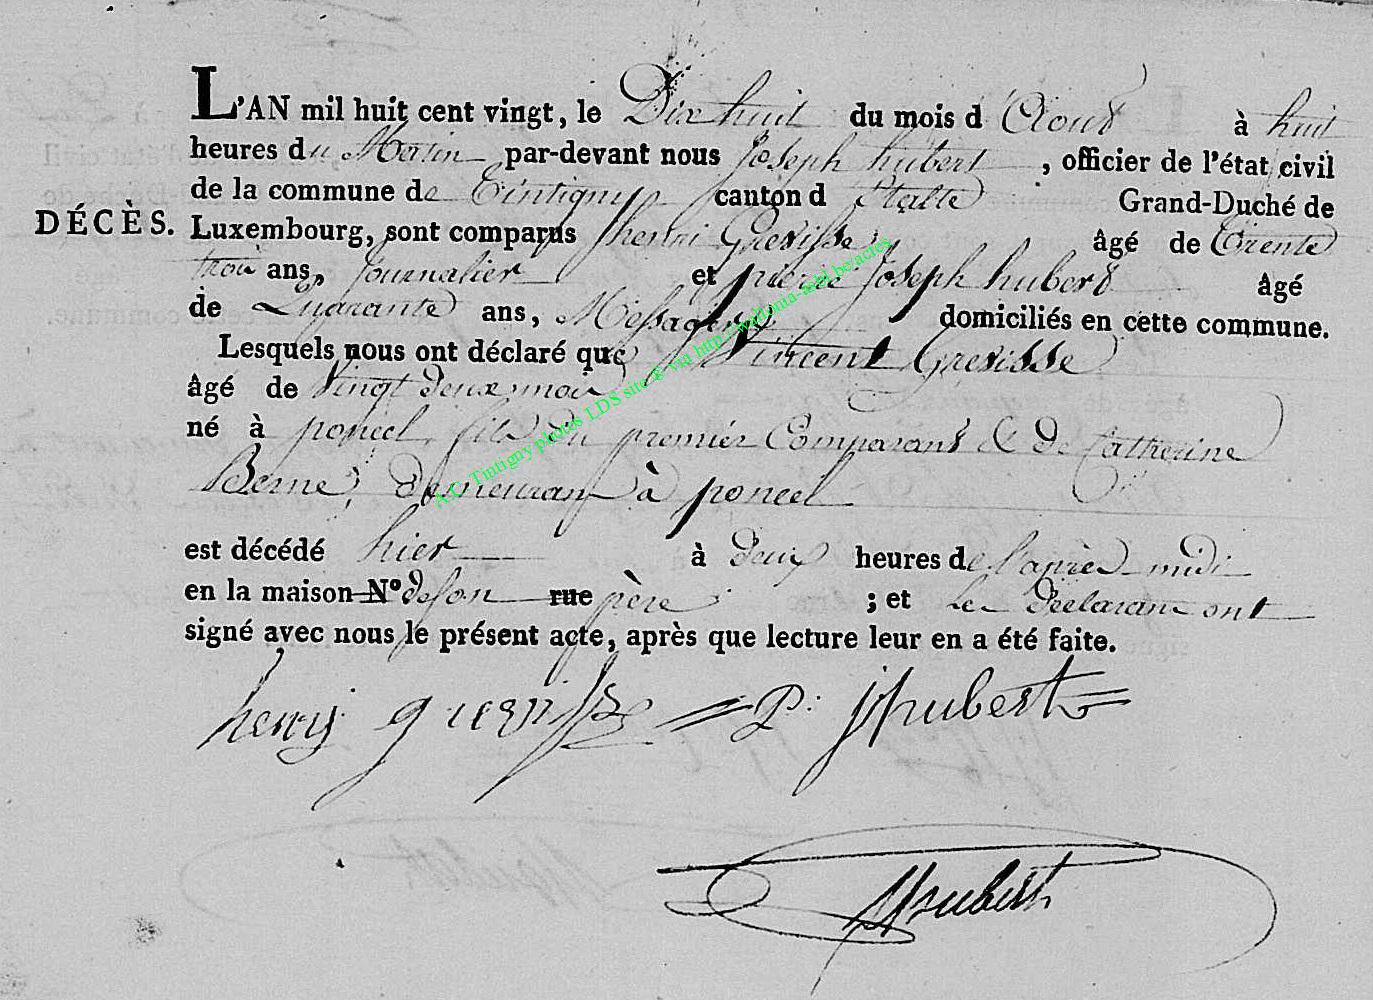 L'AN mil huit cent vingt, le Dix huit du mois d'Aout à huit
heures du Matin par-devant nous Joseph hubert, officier de l'état civil
de la commune de Tintigny canton d'Etalle Grand-Duché de
DÉCÈS. Luxembourg, sont comparus henri Grevisse âgé de Trente
trois ans, Journalier et pierre Joseph hubert âgé
de Quarante ans, Messager domiciliés en cette commune.
Lesquels nous ont déclaré que Vincent Grevisse
âgé de vingt deux mois
né à poncel, fils du premier Comparant & de Catherine
Berne, Demeurant à poncel
est décédé hier à deux heures de l'après midi
en la maison N° de son rue père ; et Les Declarans ont
signé avec nous le présent acte, après que lecture leur en a été faite.
henry P: j hubert
Hubert
A.C. Tintigny photos LDS site © via http://wallonia-asbl.be/actes